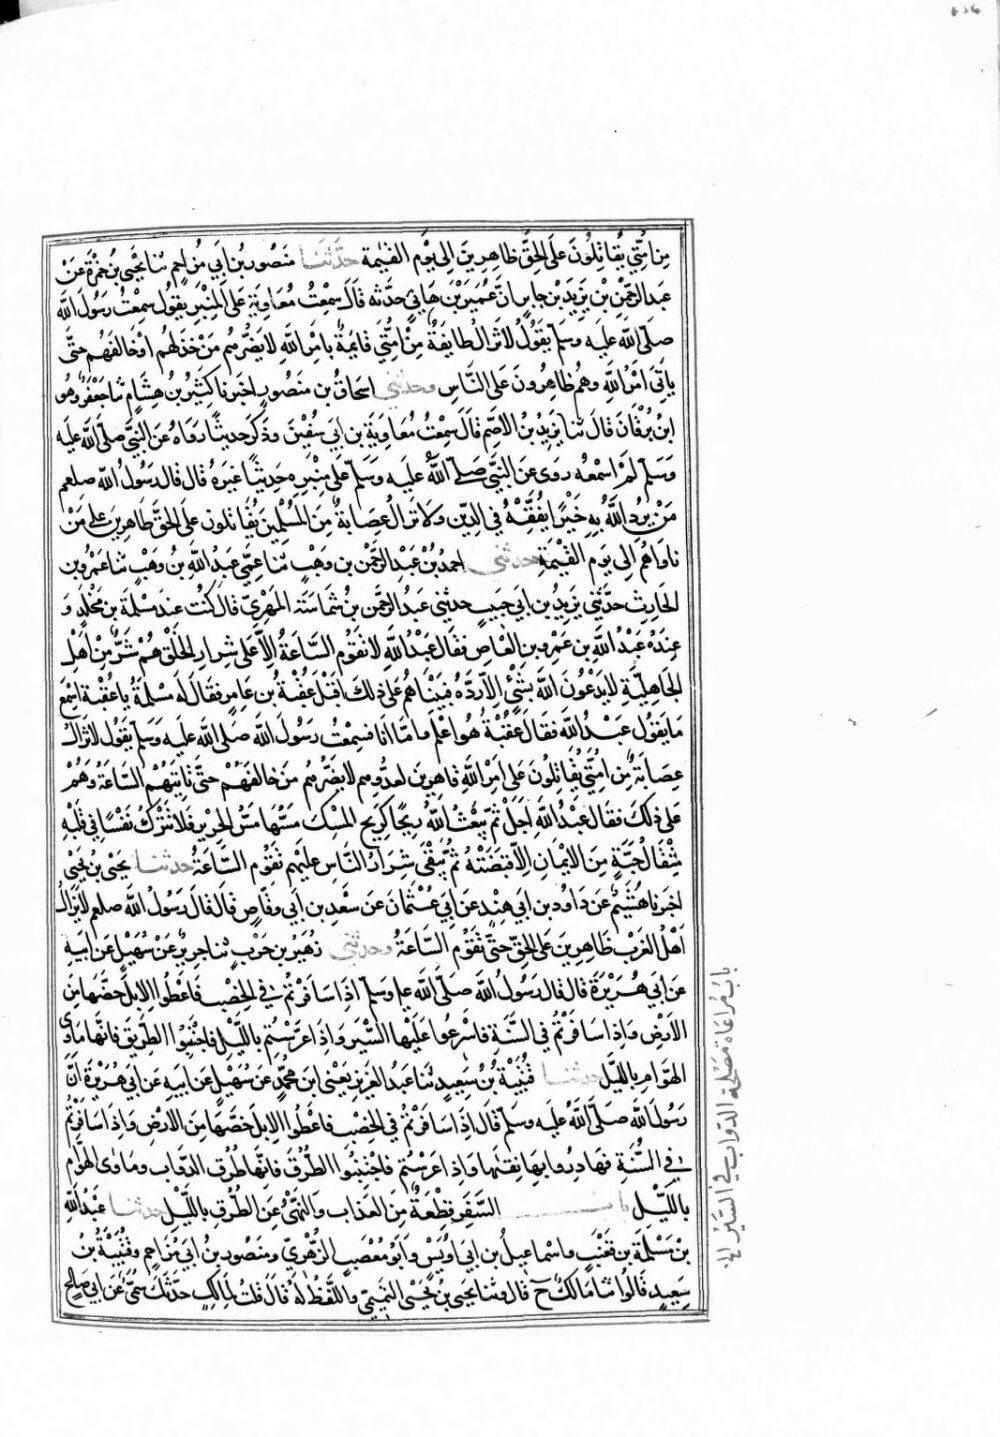 من امتي يقاتلون على الحق ظاهرين الى يوم القيمة حدثنا منصور بن ابي مزاحم ثنا يحيى بن حمزة عن
عبد الرحمن بن يزيد بن جابر ان عمير بن هاني حدثه قال سمعت معاوية على المنبر يقول سمعت رسول الله
صلى الله عليه وسلم يقول لا تزال طايفة من امتي قايمة بامر الله لا يضرهم من خذلهم او خالفهم حتى
ياتى امر الله وهم ظاهرون على الناس وحدثني اسحاق بن منصور اخبرنا كثير بن هشام ثنا جعفر وهو
ابن برقان قال ثنا يزيد بن الاصم قال سمعت معاوية بن ابي سفين وذكر حديثا رواه عن النبي صلى الله عليه
وسلم لم اسمعه روى عن النبي صلى الله عليه وسلم على منبره حديثا غيره قال قال رسول الله صلعم
من يرد الله به خيرا يفقهه في الدين ولا تزال عصابة من المسلمين يقاتلون على الحق ظاهرين على من
ناواهم الى يوم القيمة حدثني احمد بن عبد الرحمن بن وهب ثنا عمي عبد الله بن وهب ثنا عمرو بن
الحارث حدثني يزيد بن ابي حبيب حدثني عبد الرحمن بن شماسة المهري قال كنت عند مسلمة بن مخلد و
عنده عبد الله بن عمرو بن العاص فقال عبد الله لا تقوم الساعة الا على شرار الخلق هم شر من اهل
الجاهلية لا يدعون الله بشئ الا رده فبينا هم على ذلك اقبل عقبة بن عامر فقال له مسلمة يا عقبة اسمع
ما يقول عبد الله فقال عقبة هو اعلم واما انا فسمعت رسول الله صلى الله عليه وسلم يقول لا تزال
عصابة من امتي يقاتلون على امر الله قاهرين لعدوهم لا يضرهم من خالفهم حتى تاتيهم الساعة وهم
على ذلك فقال عبد الله اجل ثم يبعث الله ريحا كريح المسك مسها مس الحرير فلا تترك نفسا في قلبه
مثقال حبة من الايمان الا قبضته ثم يبقى شرار الناس عليهم تقوم الساعة حدثنا يحيى بن يحيى
اخبرنا هشيم عن داود بن ابي هند عن ابي عثمان عن سعد بن ابي وقاص قال قال رسول الله صلعم لا يزال
اهل الغرب ظاهرين على الحق حتى تقوم الساعة وحدثني زهير بن حرب ثنا جرير عن سهيل عن ابيه
عن ابي هريرة قال قال رسول الله صلى الله عليه وسلم اذا سافرتم في الخصب فاعطوا الابل حضها من
الارض واذا سافرتم في السنة فاسرعوا عليها السير واذا عرستم بالليل فاجتنبوا الطريق فانها ماوى
الهوام بالليل حدثنا قتيبة بن سعيد ثنا عبد العزيز يعني ابن محمد عن سهيل عن ابيه عن ابي هريرة ان
رسول الله صلى الله عليه وسلم قال اذا سافرتم في الخصب فاعطوا الابل حضها من الارض واذا سافرتم
في السنة فبادروا بها نقيها واذا عرستم فاجتنبوا الطرق فانها طرق الدواب وماوى الهوام
بالليل باب السفر قطعة من العذاب والنهي عن الطرق بالليل حدثنا عبد الله
بن مسلمة بن قعنب واسماعيل بن ابي اويس وابو معصب الزهري ومنصور بن ابي مزاحم وقتيبة بن
سعيد قالوا ثنا مالك ح قال وثنا يحيى بن يحيى التميمي واللفظ له قال قلت لمالك حدثك سمي عن ابي صالح
باب مراعاة مصلحة الدواب في السير